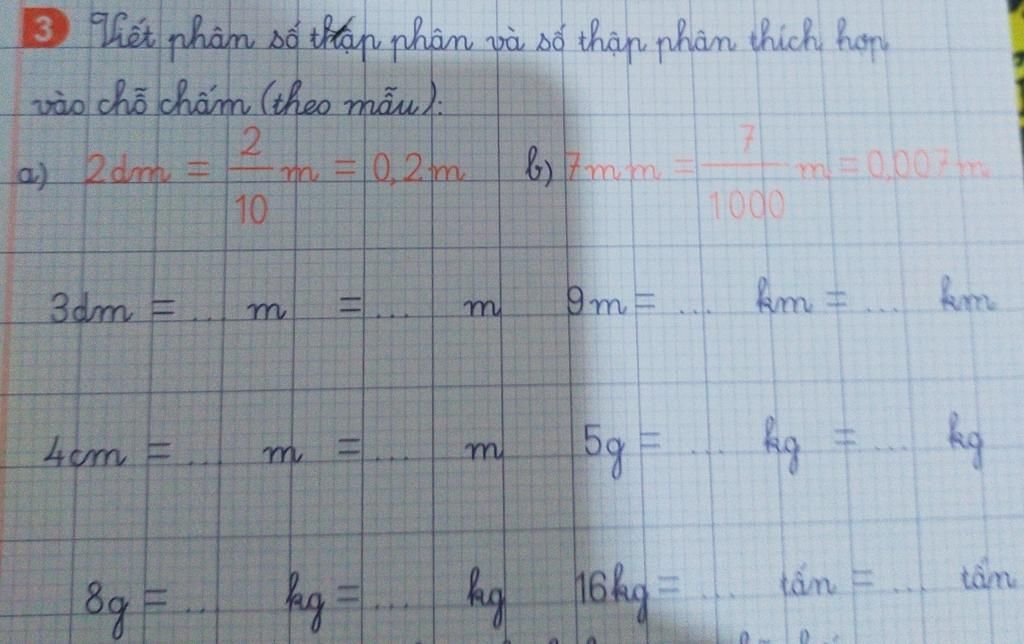 3 Viết phân số thập phân và số thập phân thích hợp
vào chỗ chấm (theo mẫu):
a) 2dm = 2/10 m = 0,2m b) 7mm = 7/1000 m = 0,007m
3dm = ... m = ... m 9m = ... km = ... km
4cm = ... m = ... m 5g = ... kg = ... kg
8g = ... kg = ... kg 16kg = ... tấn = ... tấn